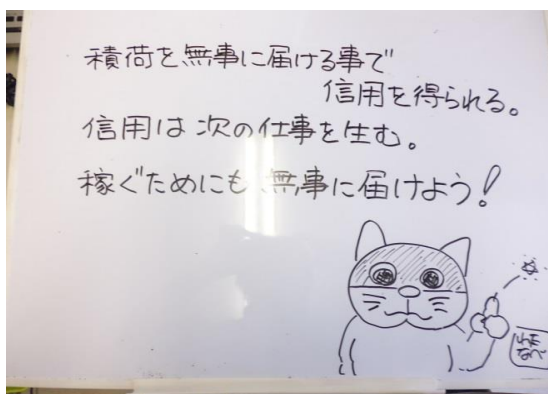 積荷を無事に届ける事で
信用を得られる。
信用は次の仕事を生む。
稼ぐためにも無事に届けよう!